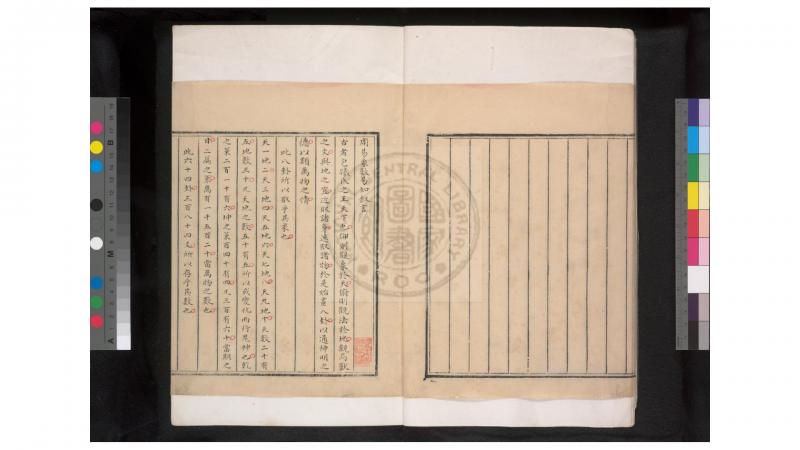 周易象數易知敘言
古者包羲氏之王天下也仰則觀象於天俯則觀法於地觀鳥獸
之文與地之宜近取諸身遠取諸物於是始畫八卦以通神明之
德以類萬物之情
此八卦所以取乎其象也
天一地二天三地四天五地六天七地八天九地十天數二十有
五地數三十凡天地之數五十有五所以成變化而行鬼神也乾
之策二百一十有六坤之策百四十有四凡三百有六十當期之
日二篇之策萬有一千五百二十當萬物之數也
此六十四卦三百八十四爻所以存乎其數也
CENTRAL LIBRARY
國家圖書
ROC